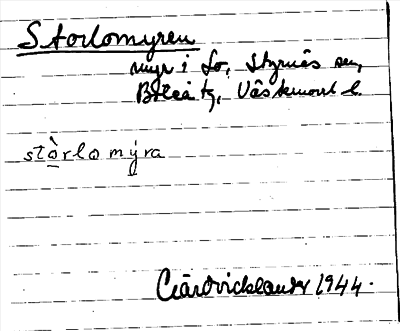 Storlomyren
myr i Lo, Styrnäs sn,
Boteå tg, Västernorrl l.
stòrlomýra
1944.